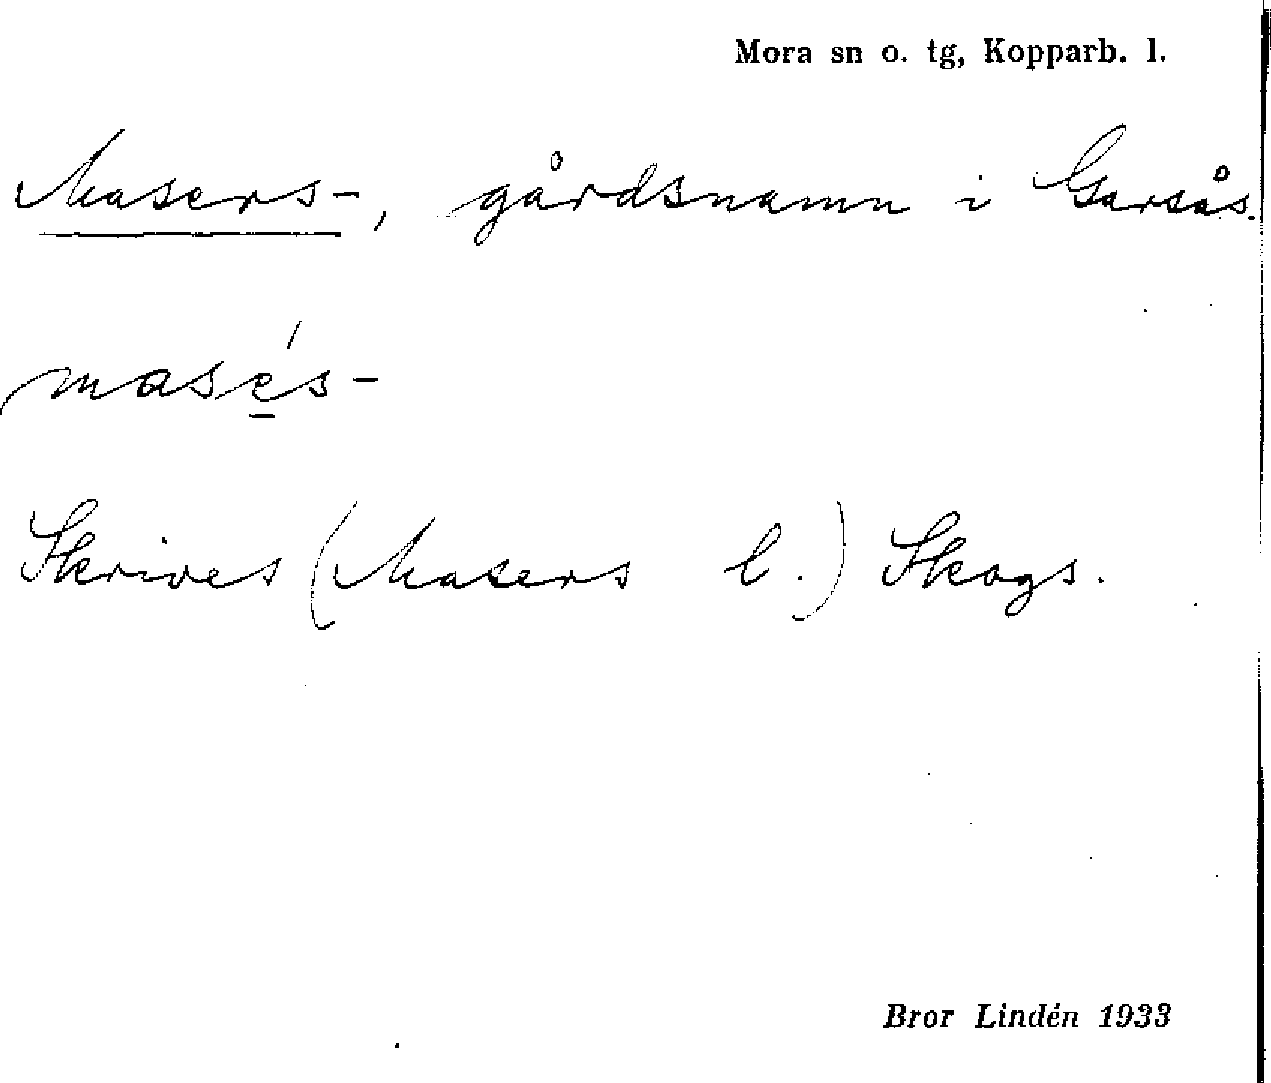 Mora sn o. tg, Kopparb. l.
Masers-, gårdsnamn i Garsås.
masе̲́s-
Skrives (Masers l.) Skogs.
Bror Lindén 1933